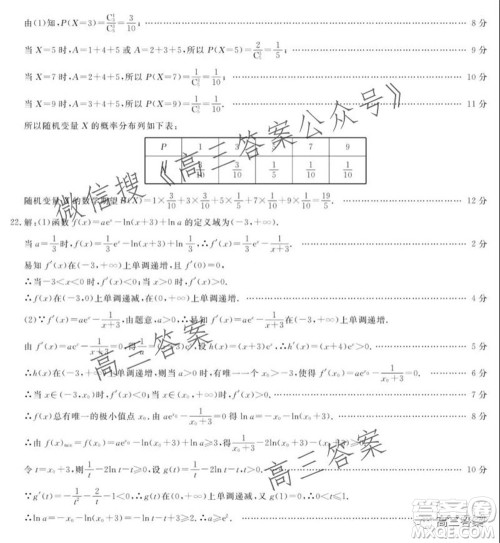 由(1)知,P(X=3)=C₃¹/C₅³=3/10. 8分
当X=5时,A=1+4+5或A=2+3+5,所以P(X=5)=2/C₅³=1/5; 9分
当X=7时,A=2+4+5,所以P(X=7)=1/C₅³=1/10; 10分
当X=9时,A=3+4+5,所以P(X=9)=1/C₅³=1/10. 11分
所以随机变量X的概率分布列如下表:
P 1 3 5 7 9
3/10 1/5 1/10 1/10
随机变量X的数学期望E(X)=1×3/10+3×3/10+5×1/5+7×1/10+9×1/10=19/5. 12分
22.解:(1)函数f(x)=aeˣ-ln(x+3)+ln a的定义域为(-3,+∞).
当a=1/3时,f(x)=1/3eˣ-ln(x+3)+ln 1/3,∴f′(x)=1/3eˣ-1/(x+3). 2分
易知f′(x)在(-3,+∞)上单调递增,且f′(0)=0,
∴当-3<x<0时,f′(x)<0;当x>0时,f′(x)>0.
∴f(x)在(-3,0)上单调递减,在(0,+∞)上单调递增. 4分
(2)∵f′(x)=aeˣ-1/(x+3),由题意,a>0,∴易知f′(x)在(-3,+∞)上单调递增.
设h(x)=(x+3)eˣ,∴h′(x)=(x+4)eˣ>0. 5分
∴h(x)在(-3,+∞)上单调递增,则当a>0时,有唯一一个x₀>-3,使得f′(x₀)=aeˣ⁰-1/(x₀+3)=0. 6分
∴当x∈(-3,x₀)时,f′(x)<0;当x∈(x₀,+∞)时,f′(x)>0. 7分
∴f(x)总有唯一的极小值点x₀.由aeˣ⁰-1/(x₀+3)=0得 8分
∴由f(x)min=f(x₀)=aeˣ⁰-ln(x₀+3)+ln a≥3,得1/(x₀+3)-2ln(x₀+3)-x₀≥3.
令t=x₀+3,则1/t-2ln t-t≥0,设g(t)=1/t-2ln t-t. 10分
∵g′(t)=-1/t²-2/t-1<0,∴g(t)在(0,+∞)上单调递减,又g(1)=0,∴0<t≤1.
∴ln a=-x₀-ln(x₀+3)=
微信搜《高三答案公众号》
高三答案
高三答案
高三答案